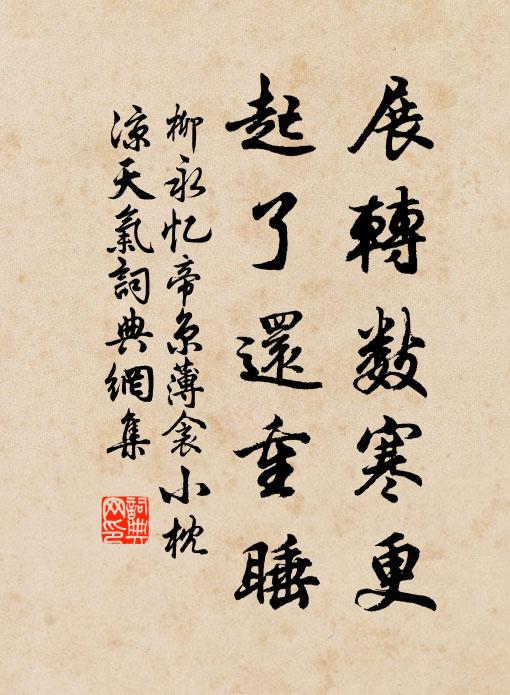 展轉數寒更
起了還重睡
柳永忆帝京薄衾小枕
凉天氣詞典網集
詞典
网印